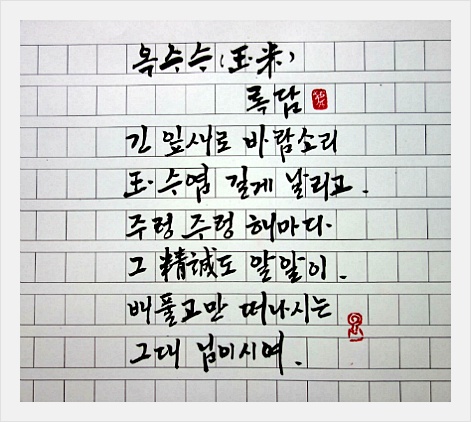 옥수수(玉米)
록담
긴 잎새로 바람소리
玉수염 길게 날리고.
주렁 주렁 해마다
그 精誠도 알알이.
베풀고만 떠나시는
그대 님이시여.